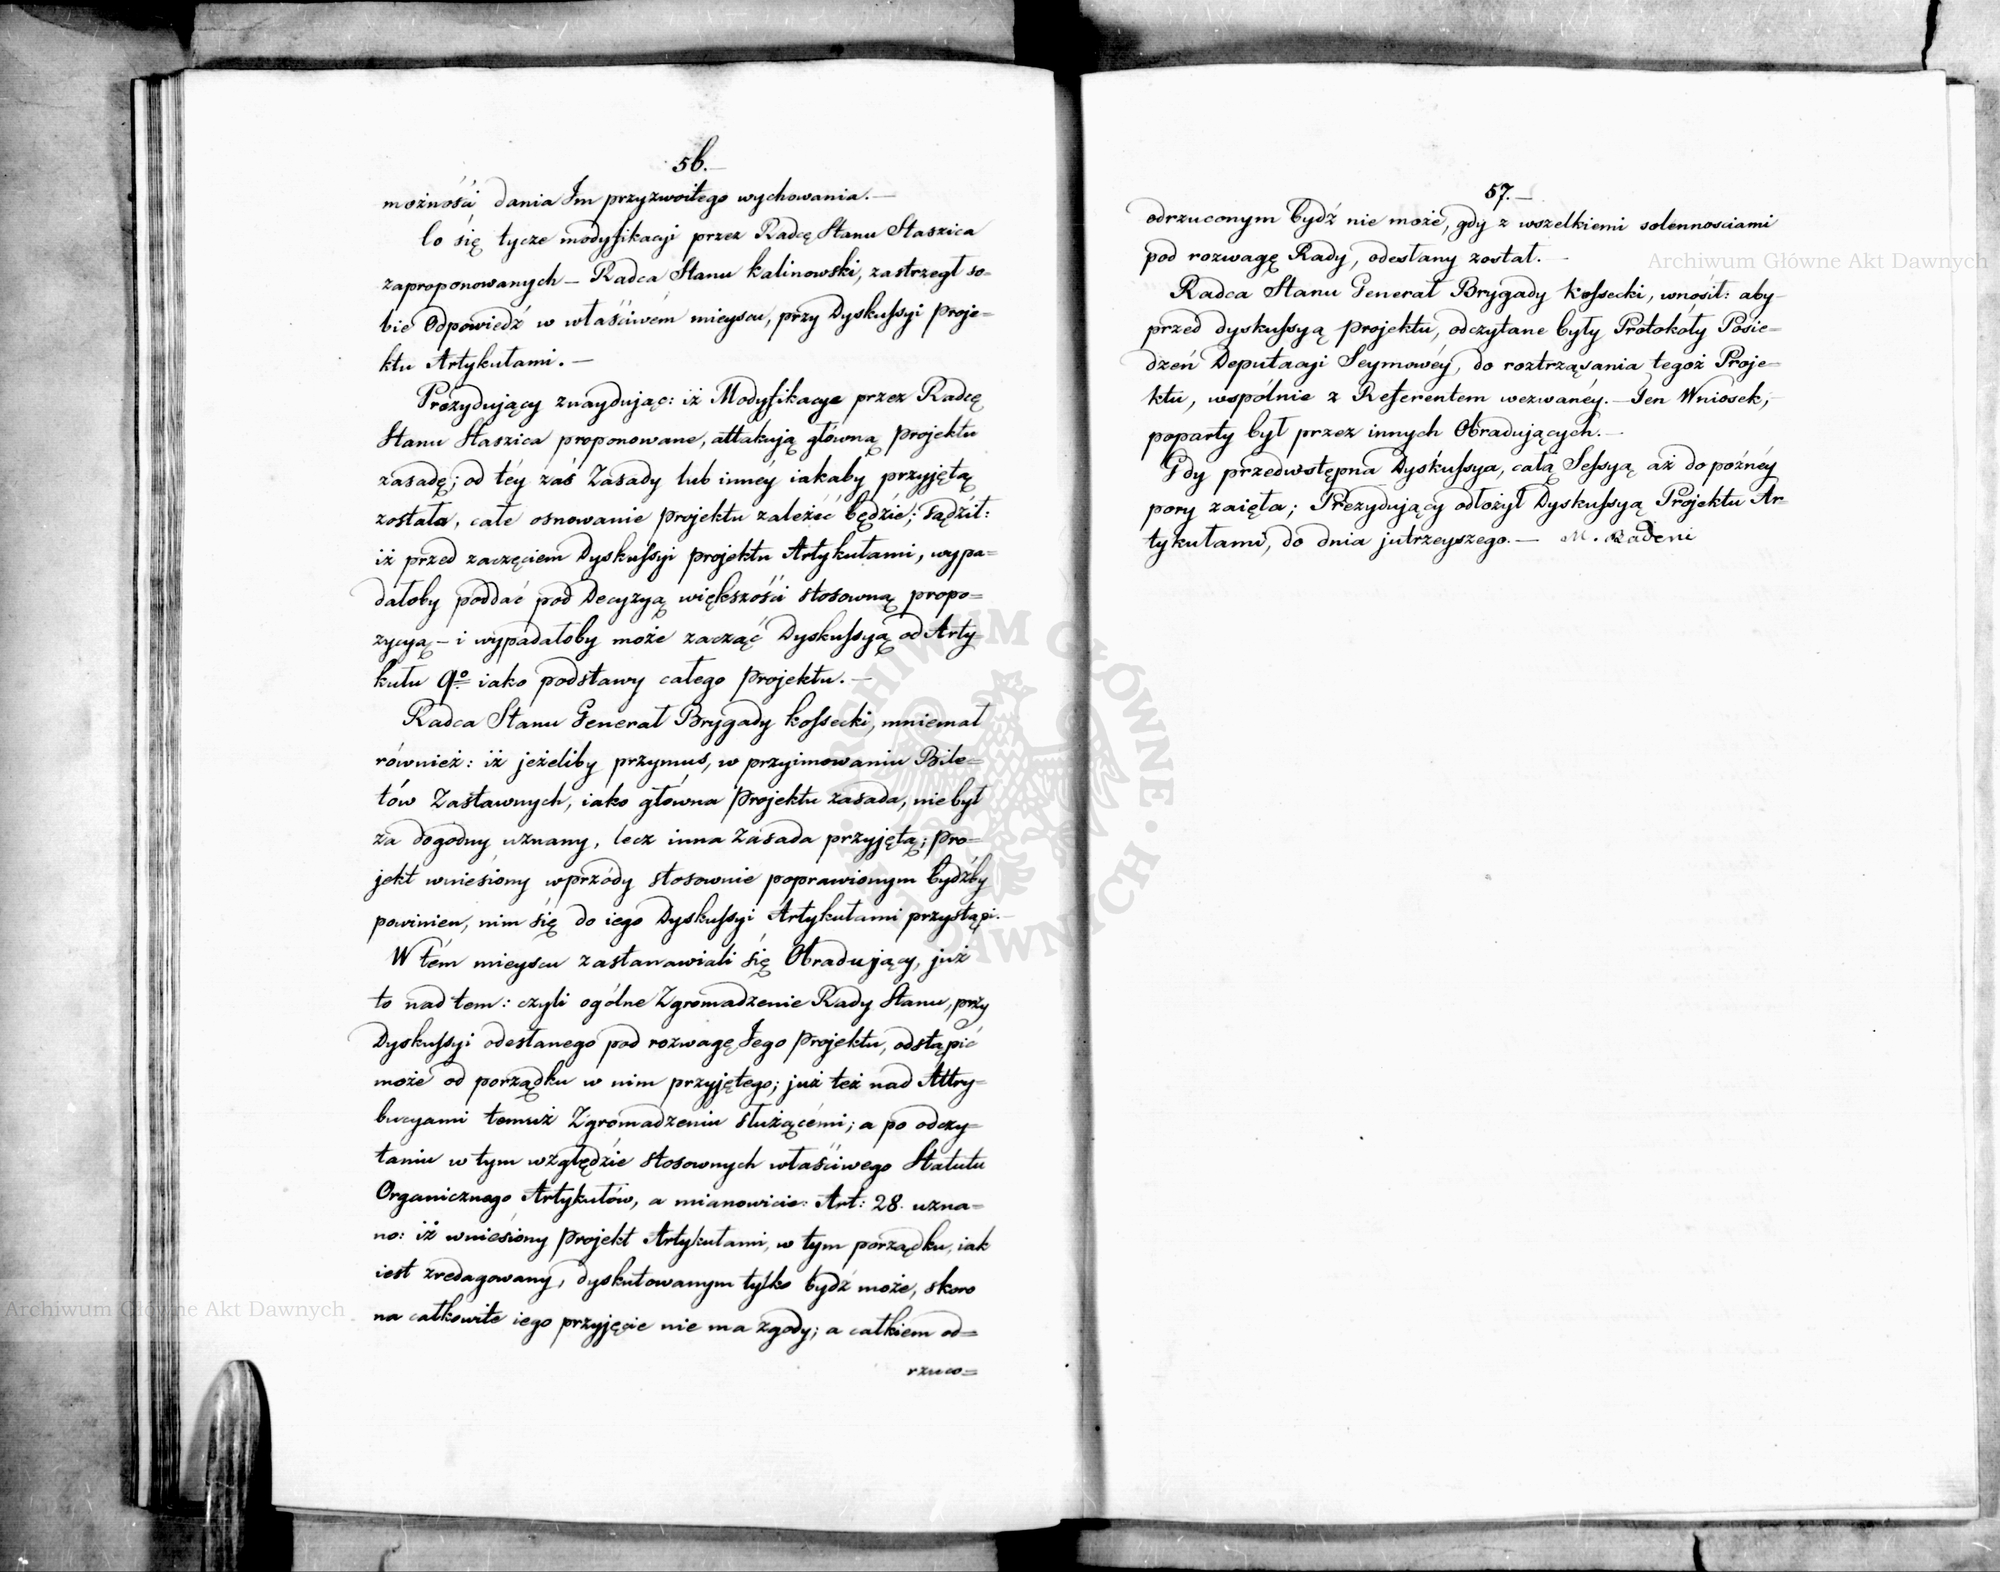 56.
możności dania Im przyzwoitego wychowania.—
Co się tycze modyfikacyi przez Radcę Stanu Staszica
zaproponowanych — Radca Stanu Kalinowski, zastrzegł so=
bie Odpowiedź w właściwém mieyscu, przy Dyskussyi Proje=
ktu Artykułami.—
Prezydujący znaydując: iż Modyfikacye przez Radcę
Stanu Staszica proponowane, attakują główną Projektu
zasadę; od téy zaś Zasady lub innéy iakaby przyjętą
została, całe osnowanie Projektu zależéć będzie; sądził:
iż przed zaczęciem Dyskussyi Projektu Artykułami, wypa=
dałoby poddać pod Decyzyą większości stosowną propo=
zycyą — i wypadałoby może zacząć Dyskussyą od Arty=
kułu 9º iako podstawy całego Projektu.—
Radca Stanu Generał Brygady Kossecki, mniemał
również: iż jeżeliby przymus, w przyimowaniu Bile=
tów Zastawnych, iako główna Projektu zasada, nie był
za dogodny uznany, lecz inna Zasada przyjętą; Pro=
jekt wniesiony wprzódy stosownie poprawionym bydźby
powinien, nim się do iego Dyskussyi Artykułami przystąpi.—
W tém mieyscu zastanawiali się Obradujący, już
to nad tem: czyli ogólne Zgromadzenie Rady Stanu, przy
Dyskussyi odesłanego pod rozwagę Jego Projektu, odstąpić
może od porządku w nim przyjętego; już też nad Attry=
bucyami temuż Zgromadzeniu służącémi; a po odczy=
taniu w tym względzie stosownych właściwego Statutu
Organicznego Artykułów, a mianowicie: Art: 28. uzna=
no: iż wniesiony Projekt Artykułami, w tym porządku, iak
iest zredagowany, dyskutowanym tylko bydź może, skoro
na całkowite iego przyjęcie nie ma zgody; a całkiem od=
rzuco=
57.—
odrzuconym bydź nie może, gdy z wszelkiemi solennosciami
pod rozwagę Rady, odesłany został.—
Radca Stanu Generał Brygady Kossecki, wnosił: aby
przed dyskussyą Projektu, odczytane były Protokóły Posie=
dzeń Deputacyi Seymowéy, do roztrząsania tegoż Proje=
ktu, wspólnie z Referentem wezwanéy.— Ten Wniosek,
poparty był przez innych Obradujących.—
Gdy przedwstępna Dyskussya, całą Sessyą aż do późnéy
pory zaięła; Prezydujący odłożył Dyskussyą Projektu Ar=
tykułami, do dnia jutrzeyszego.— M. Badeni
Archiwum Główne Akt Dawnych
Archiwum Główne Akt Dawnych
ARCHIWUM GŁÓWNE AKT DAWNYCH